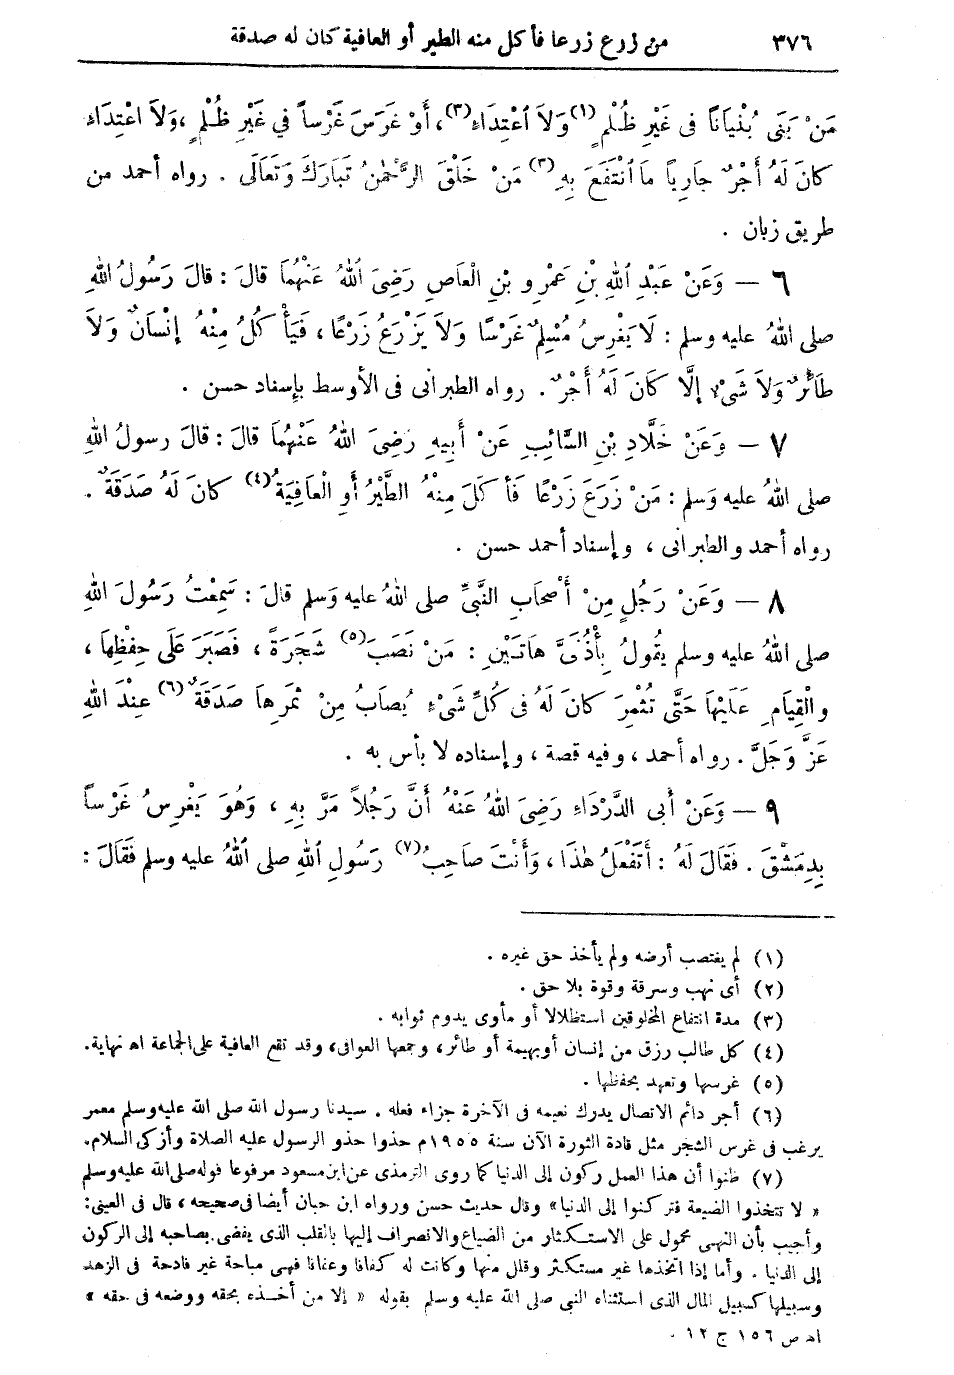 ٣٧٦ من زرع زرعا فأكل منه الطير أو العافية كان له صدقة
مَنْ بَنَى بُنْيَانًا فى غَيْرِ ظُلْمٍ (١) وَلاَ اعْتِدَاءٍ (٢)، أَوْ غَرَسَ غَرْساً في غَيْرِ ظُلْمٍ ،وَلاَ اعْتِدَاءٍ
كانَ لَهُ أَجْرٌ جارِياً مَا انْتَفَعَ بِهِ (٣) مَنْ خَلْقَ الرَّحْمٰنُ تَبَارَكَ وَتَعَالَى . رواه أحمد من
طريق زبان .
٦ — وَعَنْ عَبْدِ اللهِ بْنِ عَمْرِو بْنِ الْعَاصِ رَضِىَ اللهُ عَنْهُمَا قالَ : قالَ رَسُولُ اللهِ
صلى اللهُ عليه وسلم : لَا يَغْرِسُ مُسْلِمٌ غَرْسًا وَلاَ يَزْرَعُ زَرْعًا ، فَيَأْكُلُ مِنْهُ إِنْسَانٌ وَلاَ
طَائِرٌ وَلاَ شَىْءٌ إِلَّا كَانَ لَهُ أَجْرٌ . رواه الطبرانى فى الأوسط بإسناد حسن .
٧ — وَعَنْ خَلَّادِ بْنِ السَّائِبِ عَنْ أَبِيهِ رَضِىَ اللهُ عَنْهُمَا قالَ : قالَ رسولُ اللهِ
صلى اللهُ عليه وَسلم : مَنْ زَرَعَ زَرْعًا فَأَكَلَ مِنْهُ الطَّيْرُ أَوِ الْعَافِيَةُ (٤) كانَ لَهُ صَدَقَةٌ .
رواه أحمد والطبرانى ، وإسناد أحمد حسن .
٨ — وَعَنْ رَجُلٍ مِنْ أَصْحَابِ النَّبِىِّ صلى اللهُ عليه وَسلم قالَ : سَمِعْتُ رَسُولَ اللهِ
صلى اللهُ عليه وسلم يقُولُ بِأُذُنَىَّ هَاتَيْنِ : مَنْ نَصَبَ (٥) شَجَرَةً ، فَصَبَرَ عَلَى حِفْظِهَا ،
والْقِيَامِ عَلَيْهَا حَتَّى تُثْمِرَ كانَ لَهُ فى كُلِّ شَىْءٍ يُصَابُ مِنْ ثَمَرِهَا صَدَقَةٌ (٦) عِنْدَ اللهِ
عَزَّ وَجَلَّ . رواه أحمد ، وفيه قصة ، وإسناده لا بأس به .
٩ — وَعَنْ أَبى الدَّرْدَاءِ رَضِىَ اللهُ عَنْهُ أَنَّ رَجُلاً مَرَّ بِهِ ، وَهُوَ يَغْرِسُ غَرْساً
بِدِمَشْقَ . فَقَالَ لَهُ : أَتَفْعَلُ هٰذَا ، وَأَنْتَ صَاحِبُ (٧) رَسُولِ اللهِ صلى اللهُ عليه وسلم فَقَالَ :
(١) لم يغتصب أرضه ولم يأخذ حق غيره .
(٢) أى نهب وسرقة وقوة بلا حق .
(٣) مدة انتفاع المخلوقين استظلالا أو مأوى يدوم ثوابه .
(٤) كل طالب رزق من إنسان أوبهيمة أو طائر، وجمعها العوافى، وقد تقع العافية على الجماعة اه نهاية.
(٥) غرسها وتعهد بحفظها .
(٦) أجر دائم الاتصال يدرك نعيمه فى الآخرة جزاء فعله . سيدنا رسول الله صلى الله عليه وسلم معمر
يرغب فى غرس الشجر مثل قادة الثورة الآن سنة ١٩٥٥م حذوا حذو الرسول عليه الصلاة وأزكى السلام.
(٧) ظنوا أن هذا العمل ركون إلى الدنيا كما روى الترمذى عن ابن مسعود مرفوعا قوله صلى الله عليه وسلم
« لا تتخذوا الضيعة فتركنوا إلى الدنيا» وقال حديث حسن ورواه ابن حبان أيضا فى صحيحه ، قال فى العينى:
وأجيب بأن النهى محمول على الاستكثار من الضياع والانصراف إليها بالقلب الذى يفضى بصاحبه إلى الركون
إلى الدنيا . وأما إذا اتخذها غير مستكثر وقلل منها وكانت له كفافا وعفافا فهى مباحة غير قادحة فى الزهد
وسبيلها كسبيل المال الذى استثناه النبى صلى الله عليه وسلم بقوله « إلا من أخذه بحقه ووضعه فى حقه »
اه ص ١٥٦ ج ١٢ .